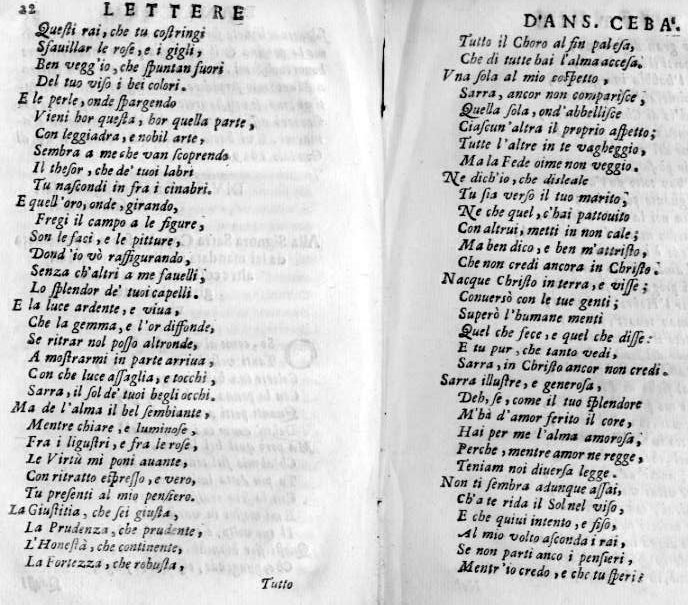 22 LETTERE
Questi rai, che tu costringi
Sfauillar le rose, e i gigli,
Ben vegg'io, che spuntan fuori
Del tuo viso i bei colori.
E le perle, onde spargendo
Vieni hor questa, hor quella parte,
Con leggiadra, e nobil arte,
Sembra a me che van scoprendo
Il thesor, che de' tuoi labri
Tu nascondi in fra i cinabri.
E quell'oro, onde, girando,
Fregi il campo a le figure,
Son le faci, e le pitture,
Dond'io vò raffigurando,
Senza ch'altri a me fauelli,
Lo splendor de' tuoi capelli.
E la luce ardente, e viua,
Che la gemma, e l'or diffonde,
Se ritrar nol posso altronde,
A mostrarmi in parte arriua,
Con che luce assaglia, e tocchi,
Sarra, il sol de' tuoi begli occhi.
Ma de l'alma il bel sembiante,
Mentre chiare, e luminose,
Fra i ligustri, e fra le rose,
Le Virtù mi poni auante,
Con ritratto espresso, e vero,
Tu presenti al mio pensiero.
La Giustitia, che sei giusta,
La Prudenza, che prudente,
L'Honestà, che continente,
La Fortezza, che robusta,
Tutto
D'ANS. CEBA'.
Tutto il Choro al fin palesa,
Che di tutte hai l'alma accesa.
Vna sola al mio cospetto,
Sarra, ancor non comparisce,
Quella sola, ond'abbellisce
Ciascun'altra il proprio aspetto;
Tutte l'altre in te vagheggio,
Ma la Fede oime non veggio.
Ne dich'io, che disleale
Tu sia verso il tuo marito;
Ne che quel, c'hai pattouito
Con altrui, metti in non cale;
Ma ben dico, e ben m'attristo,
Che non credi ancora in Christo.
Nacque Christo in terra, e visse;
Conuersò con le tue genti;
Superò l'humane menti
Quel che fece, e quel che disse:
E tu pur, che tanto vedi,
Sarra, in Christo ancor non credi.
Sarra illustre, e generosa,
Deh, se, come il tuo splendore
M'hà d'amor ferito il core,
Hai per me l'alma amorosa,
Perche, mentre amor ne regge,
Teniam noi diuersa legge.
Non ti sembra adunque assai,
Ch'a te rida il Sol nel viso,
E che quiui intento, e fiso,
Al mio volto asconda i rai,
Se non parti anco i pensieri,
Mentr'io credo, e che tu speri?